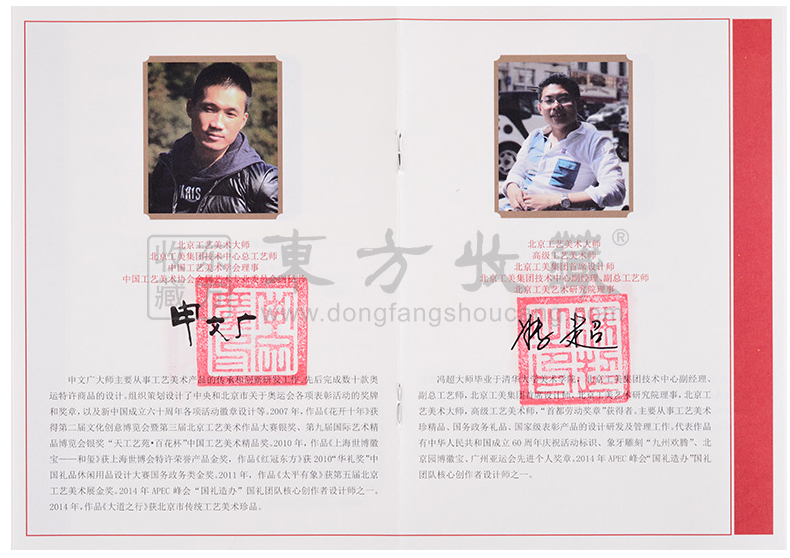 北京工艺美术大师
北京工美集团技术中心总工艺师
中国工艺美术学会理事
中国工艺美术协会金属艺术专业委员会副秘书长
申文广
申文广大师主要从事工艺美术产品的传承和创新研发工作,先后完成数十款奥
运特许商品的设计、组织策划设计了中央和北京市关于奥运会各项表彰活动的奖牌
和奖章,以及新中国成立六十周年各项活动徽章设计等。2007年,作品《花开十年》获
得第二届文化创意博览会暨第三届北京工艺美术作品大赛银奖、第九届国际艺术精
品博览会银奖“天工艺苑•百花杯”中国工艺美术精品奖。2010年,作品《上海世博徽
宝——和玺》获上海世博会特许荣誉产品金奖,作品《红冠东方》获2010“华礼奖”中
国礼品休闲用品设计大赛国务政务类金奖。2011年,作品《太平有象》获第五届北京
工艺美术展金奖。2014年APEC峰会“国礼造办”国礼团队核心创作者设计师之一。
2014年,作品《大道之行》获北京市传统工艺美术珍品。
北京工艺美术大师
高级工艺美术师
北京工美集团首席设计师
北京工美集团技术中心副经理、副总工艺师
北京工美艺术研究院理事
冯超大师毕业于清华大学美术学院,北京工美集团技术中心副经理、
副总工艺师,北京工美集团首席设计师、北京工美艺术研究院理事,北京工
艺美术大师,高级工艺美术师,“首都劳动奖章”获得者。主要从事工艺美术
珍精品、国务政务礼品、国家级表彰产品的设计研发及管理工作。代表作品
有中华人民共和国成立60周年庆祝活动标识、象牙雕刻“九州欢腾”、北
京园博徽宝、广州亚运会先进个人奖章。2014年APEC峰会“国礼造办”国礼
团队核心创作者设计师之一。
東方收藏®
www.dongfangshoucang.com
ARIS